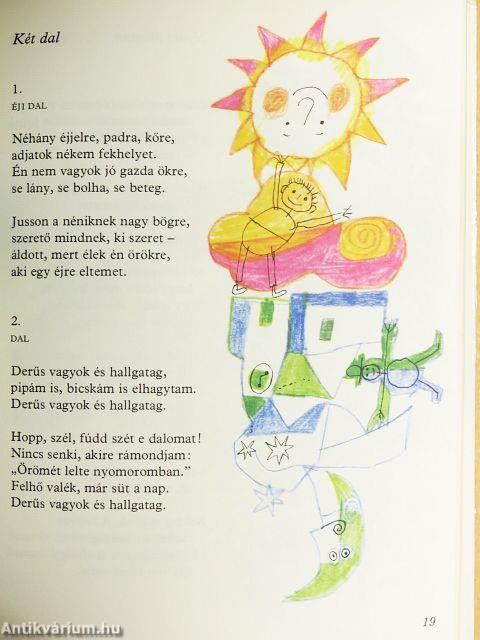 Két dal
1.
ÉJI DAL
Néhány éjjelre, padra, kőre,
adjatok nékem fekhelyet.
Én nem vagyok jó gazda ökre,
se lány, se bolha, se beteg.
Jusson a néniknek nagy bögre,
szerető mindnek, ki szeret –
áldott, mert élek én örökre,
aki egy éjre eltemet.
2.
DAL
Derűs vagyok és hallgatag,
pipám is, bicskám is elhagytam.
Derűs vagyok és hallgatag.
Hopp, szél, fúdd szét e dalomat!
Nincs senki, akire rámondjam:
„Örömét lelte nyomoromban.”
Felhő valék, már süt a nap.
Derűs vagyok és hallgatag.
19
Antikvárium.hu